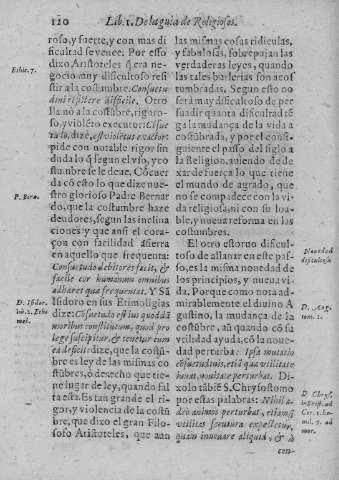 120 Lib. 1. De la guia de Religiosos.
roso, y fuerte, y con mas di
ficultad se vence. Por esso
dixo Aristoteles q̃ era ne-
Ethic. 7.
gocio muy dificultoso resi
stir a la costumbre. Consuetu
dini resistere difficile. Otro
llanó a la costũbre, rigoro-
so, y violẽto executor: Cõsue
tudo, dizẽ, est violetus exactor:
pide con notable rigor sin
duda lo q̃ segun el vso, y co
stumbre se le deue. Cõcuer
da cõ esto lo que dize nue-
stro glorioso Padre Bernar
P. Bern.
do, que la costumbre haze
deudores, segun las inclina
ciones: y que ansi el cora-
çon con facilidad assierra
en aquello que frequenta:
Consuetudo debitores facit, &
facile cor humanum omnibus
adhæret quæ frequentat. Y Sã
D. Isidor.
Isidoro en sus Etimologias
dize: Consuetudo est ius quoddã
moribus constitutum, quod pro
lege suscipitur, & tenetur cum
ea deficit: dize, que la costũ-
bre es ley de las mismas co
stũbres, ó derecho que tie-
ne lugar de ley, quando fal
ta esta. Es tan grande el ri-
gor, y violencia de la costũ
bre, que dixo el gran Filo-
sofo Aristoteles, que aun
las mismas cosas ridiculas,
y fabulosas, sobrepujan las
verdaderas leyes, quando
las tales burlerias son acos
tumbradas. Segun esto no
será muy dificultoso de per
suadir quanta dificultad tẽ
ga la mudança de la vida a
costũbrada, y por el consi-
guiente el passo del siglo a
la Religion, auiendo de de-
xar de fuerça lo que tiene
el mundo de agrado, que
no se compadece con la vi-
da religiosa, ni con su loa-
ble, y nueua reforma en las
costumbres.
El otro estoruo dificul-
toso de allanar en este pas-
so, es la misma nouedad de
Nouedad
dificultosa
los principios, y nueua vi-
da. Porque como nota ad-
mirablemente el diuino A
gustino, la mudança de la
D. Aug.
costũbre, aũ quando cõ sa
vtilidad ayuda, cõ la noue-
dad perturba: Ipsa mutatio
cõsuetudinis, etiã quæ vtilitate
iuuat, nouitate perturbat. Di-
xolo tãbiẽ S. Chrysostomo
por estas palabras: Nihil a-
D. Chrys.
deò animos perturbat, etiamsi
vtilitas secutura expectetur,
quam innouare aliquid, & à
con-